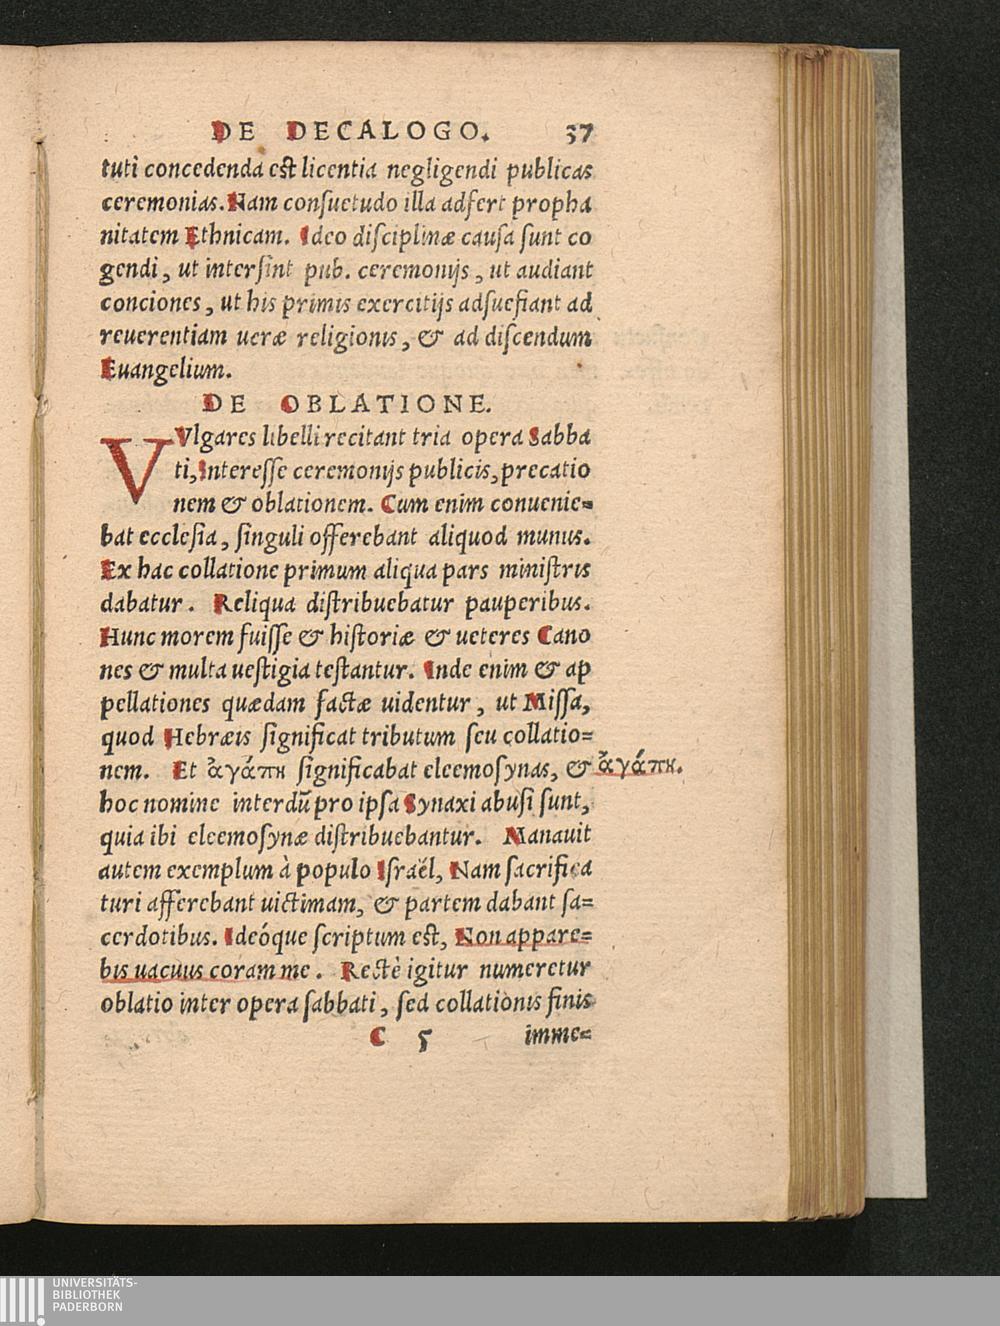 DE DECALOGO. 37
tuti concedenda est licentia negligendi publicas
ceremonias. Nam consuetudo illa adfert propha
nitatem Ethnicam. Ideo disciplinæ causa sunt co
gendi, ut intersint pub. ceremonijs, ut audiant
conciones, ut his primis exercitijs adsuefiant ad
reuerentiam ueræ religionis, & ad discendum
Euangelium.
DE OBLATIONE.
VVlgares libelli recitant tria opera Sabba
ti, Interesse ceremonijs publicis, precatio
nem & oblationem. Cum enim conuenie=
bat ecclesia, singuli offerebant aliquod munus.
Ex hac collatione primum aliqua pars ministris
dabatur. Reliqua distribuebatur pauperibus.
Hunc morem fuisse & historiæ & ueteres Cano
nes & multa uestigia testantur. Inde enim & ap
pellationes quædam factæ uidentur, ut Missa,
quod Hebræis significat tributum seu collatio=
nem. Et ἀγάπη significabat eleemosynas, & ἀγάπη.
hoc nomine interdũ pro ipsa Synaxi abusi sunt,
quia ibi eleemosynæ distribuebantur. Manauit
autem exemplum à populo Israël, Nam sacrifica
turi afferebant uictimam, & partem dabant sa=
cerdotibus. Ideóque scriptum est, Non appare=
bis uacuus coram me. Rectè igitur numeretur
oblatio inter opera sabbati, sed collationis finis
C 5 imme=
UNIVERSITÄTS-
BIBLIOTHEK
PADERBORN